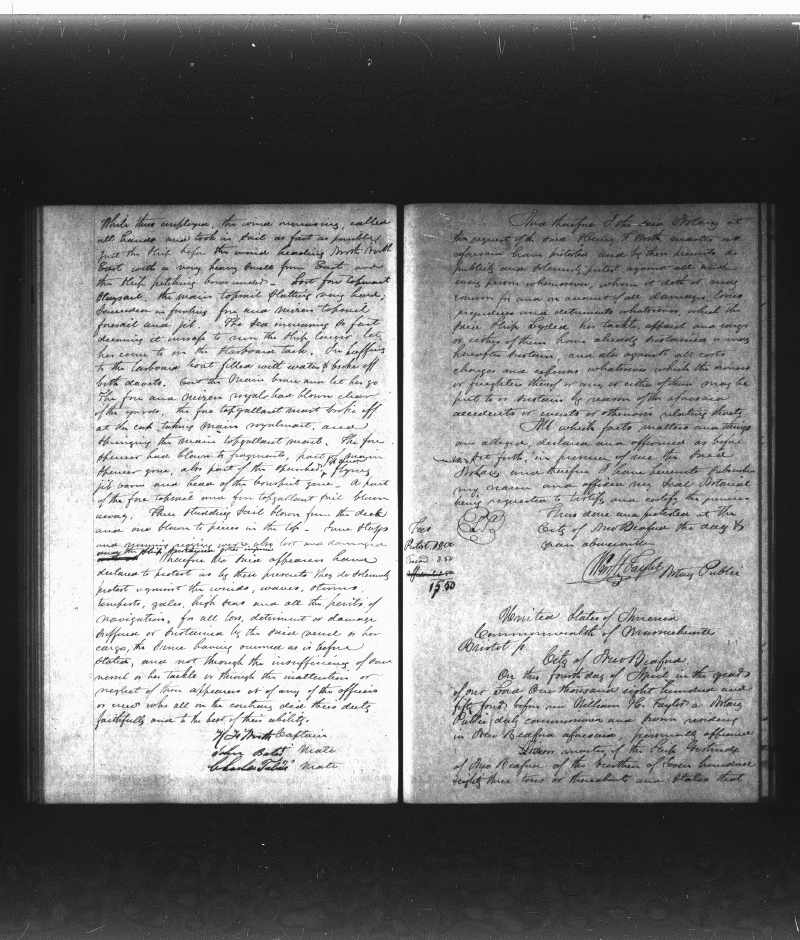 While thus employed, the wind increasing, called
all hands and took in sail as fast as possible,
just the Ship before the wind heading North North
East with a very heavy swell from East, and
the Ship pitching bows under. Lost fore topmast
Staysail, the main topsail Slatting very hard,
Succeeded in furling fore and mizen topsail
foresail and jib. The Sea increasing so fast
deeming it unsafe to run the Ship longer, let
her come to on the Starboard tack. In luffing
to the larboard boat filled with water & broke off
both davits. Cut the Main brace and let her go
The fore and mizen royals had blown clear
of the yards, the fore topgallant mast broke off
at the cap taking main royalmast, and
Springing the main topgallant mast. The fore
Spencer had blown to fragments, part of main
Spencer gone, also part of the Spanker, flying
jib boom and head of the bowsprit gone. A part
of the fore topsail and fore topgallant Sail blown
away. Three Studding Sail blown from the deck
and one blown to pieces in the top. Some Stays
and running rigging were also lost and damaged
Wherefore the said appearers have
declared to protest as by these presents they do Solemnly
protest against the winds, waves, storms,
tempests, gales, high seas and all the perils of
navigation, for all loss, detriment or damage
Suffered or Sustained by the Said vessel or her
cargo, the Same having occurred as is before
Stated, and not through the insufficiency of Said
vessel or her tackle or through the inattention or
neglect of them appearers or of any of the officers
or crew who all on the contrary did their duty
faithfully and to the best of their ability.
North Captain
John Bates Mate
Charles Mate
And therefore I the said Notary at
the request of the said Henry F. North master as
aforesaid have protested and by these presents do
publicly and Solemnly protest against all and
every person whomsoever, whom it doth or may
concern for and on account of all damages, losses
prejudices and detriments whatsoever, which the
Said Ship her tackle, apparel and cargo
or either of them have already Sustained or may
hereafter Sustain, and also against all costs
charges and expenses whatsoever which the owners
or freighters thereof or any or either of them may be
put to or Sustain by reason of the aforesaid
accidents or events or otherwise relating thereto
All which facts matters and things
are alleged, declared and affirmed as before
is Set forth, in presence of me the Said
Notary, and therefore I have hereunto Subscribed
my name and affixed my Seal Notarial
being requested to testify and certify the premises
Thus done and protested at the
City of New Bedford the day &
year abovewritten
Fees
Protest
Wm H Taylor Notary Public
United States of America
Commonwealth of Massachusetts
Bristol ss.
City of New Bedford
On this fourth day of April in the year
of our Lord One thousand eight hundred and
fifty four before me William H. Taylor a Notary
Public duly commissioned and Sworn residing
in New Bedford aforesaid, personally appeared
master of the Ship
of New Bedford of the burthen of Seven hundred
eighty three tons or thereabouts and States that